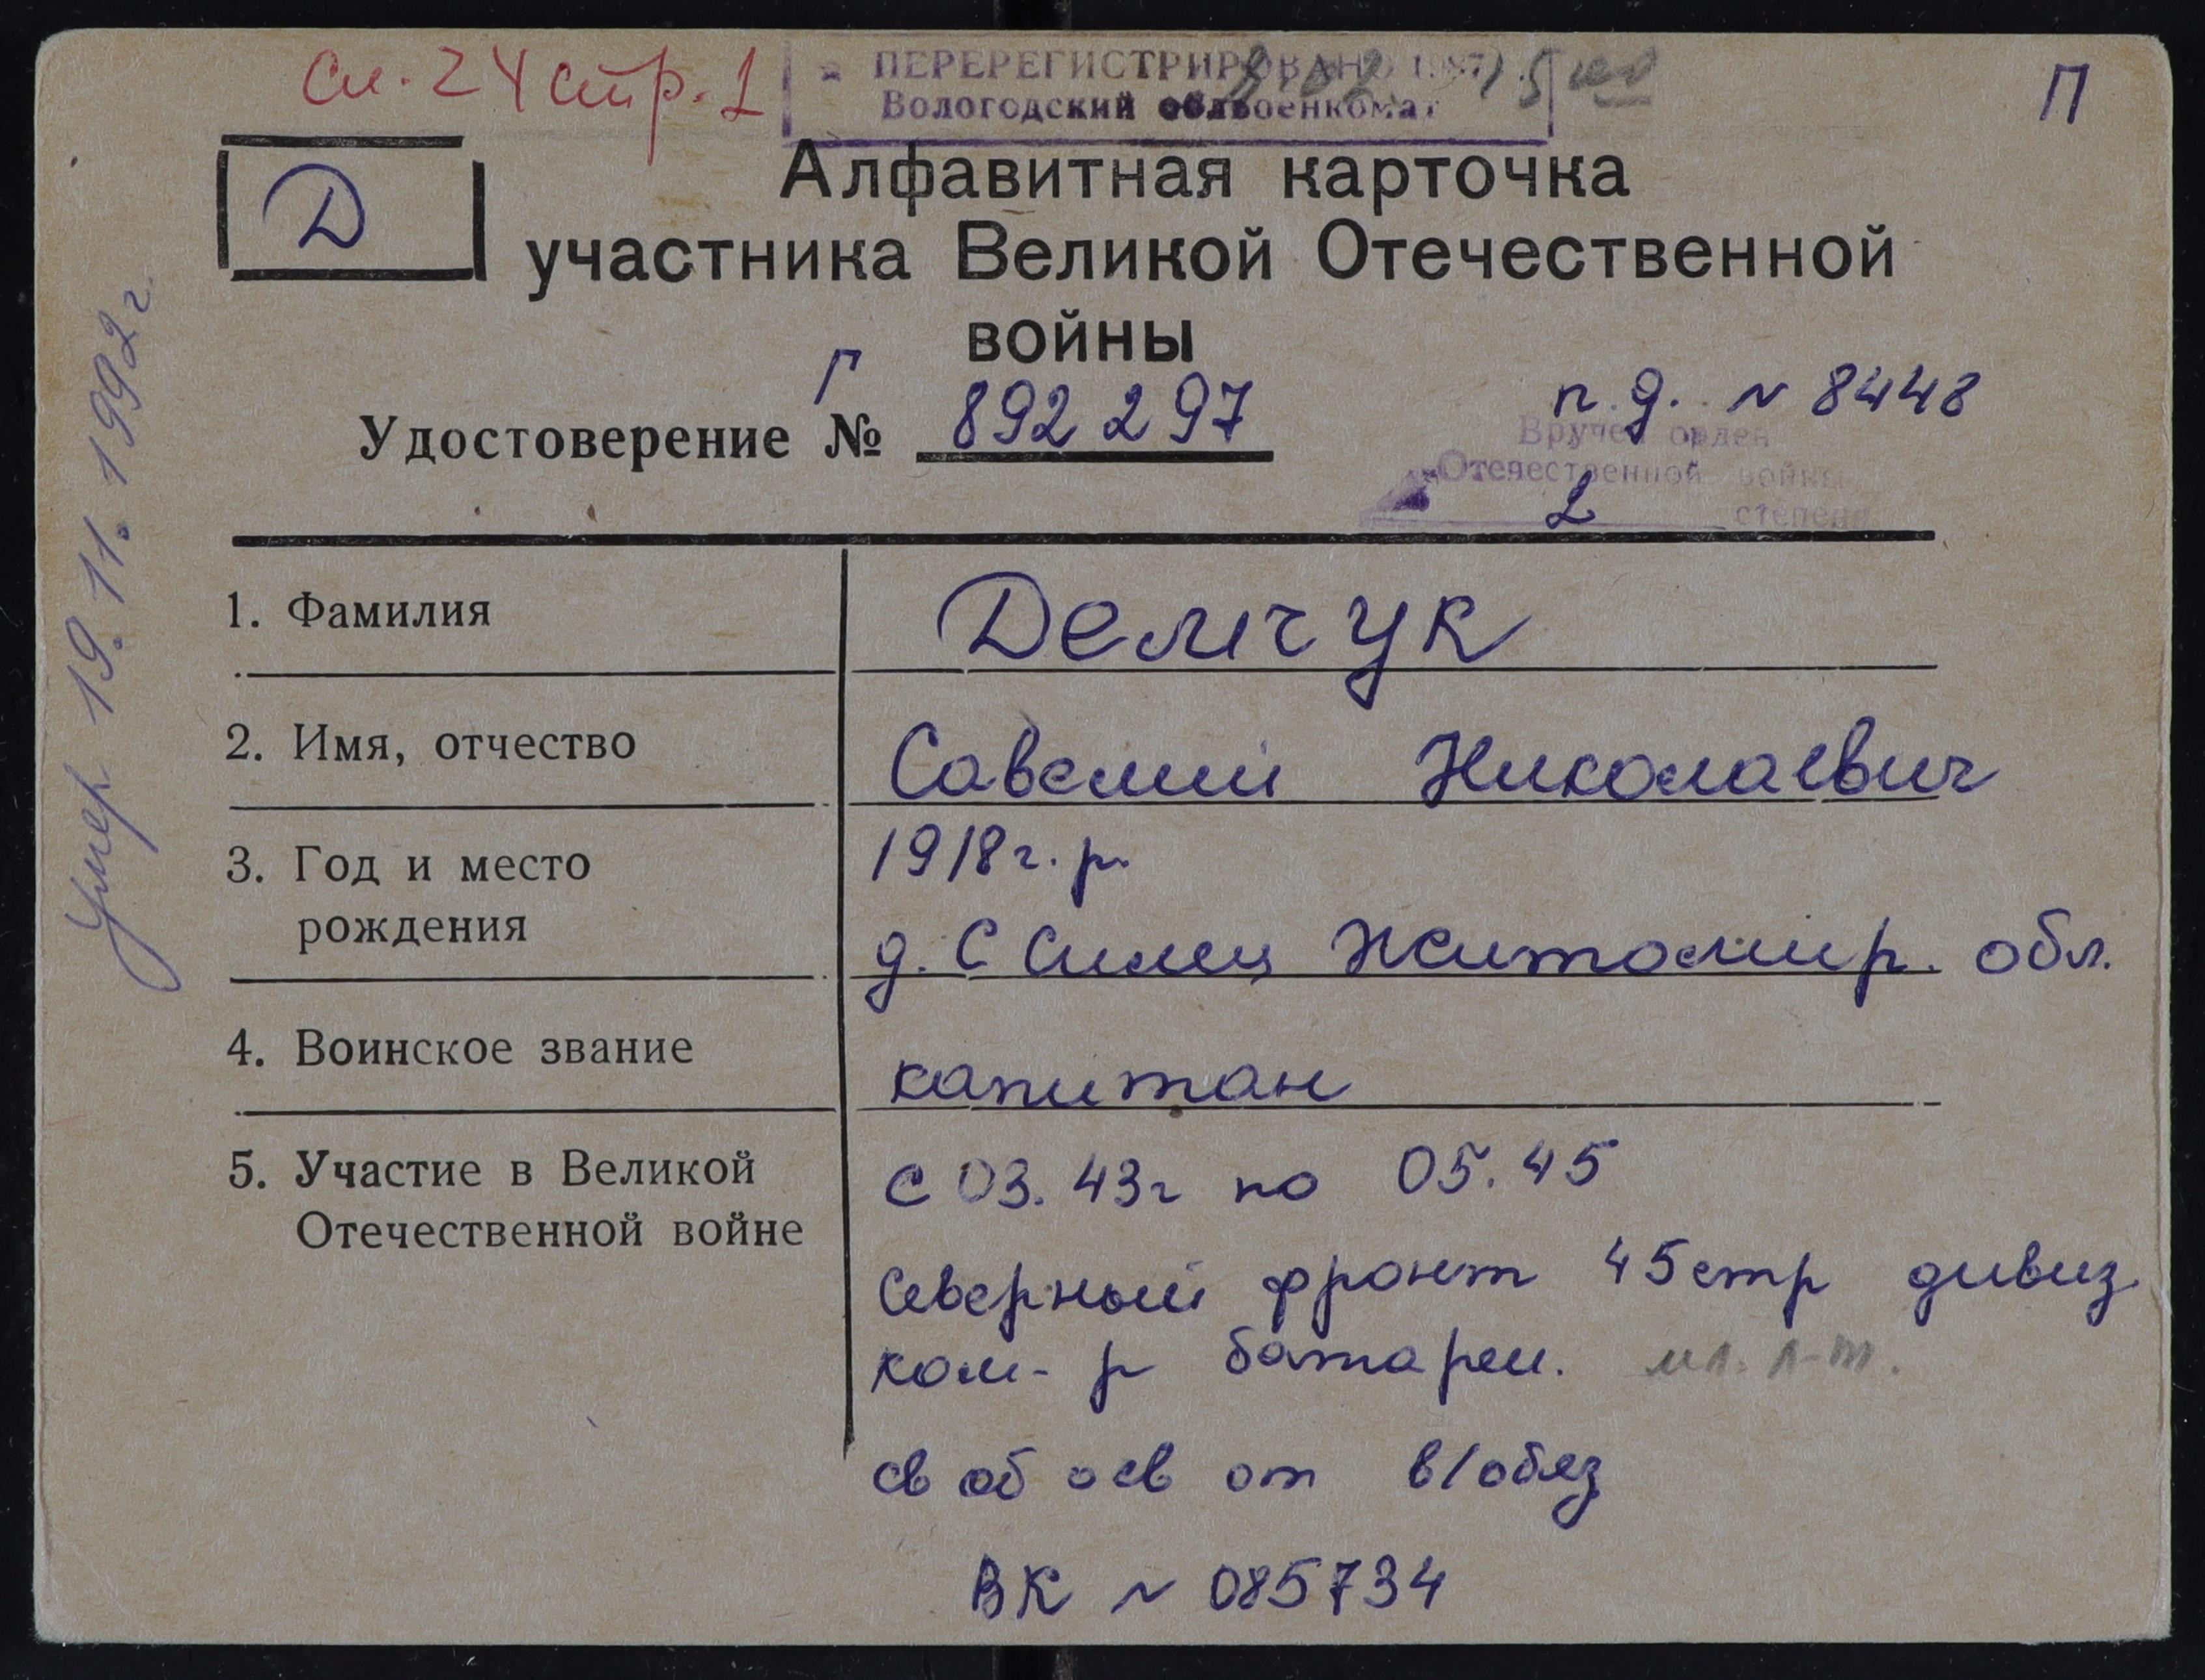 сп. 24 стр. 1
ПЕРЕРЕГИСТРИРОВАНО 1987
Вологодский облвоенкомат
П
Д
Алфавитная карточка
участника Великой Отечественной
войны
Г
Удостоверение № 892297
п. д. N 8448
Вручен орден
Отечественной войны
2 степени
Умер 19.11.1992г.
1. Фамилия Демчук
2. Имя, отчество Савелий Николаевич
3. Год и место 1918 г. р.
рождения д. С Силец Житомир. обл.
4. Воинское звание капитан
5. Участие в Великой с 03.43г по 05.45
Отечественной войне
Северный фронт 45 стр дивиз
ком-р батареи. мл. л-т.
св об осв от в/обяз
ВК N 085734